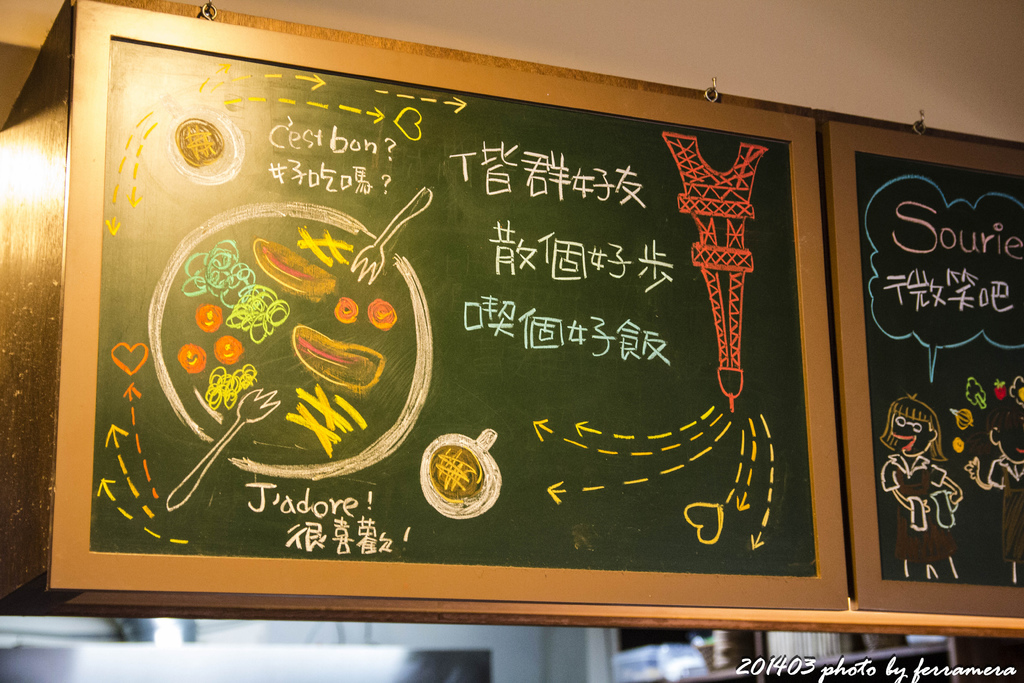 C'est bon?
好吃嗎?
偕群好友
散個好步
喫個好飯
J'adore!
很喜歡!
Sourie
微笑吧
201403 photo by ferramera